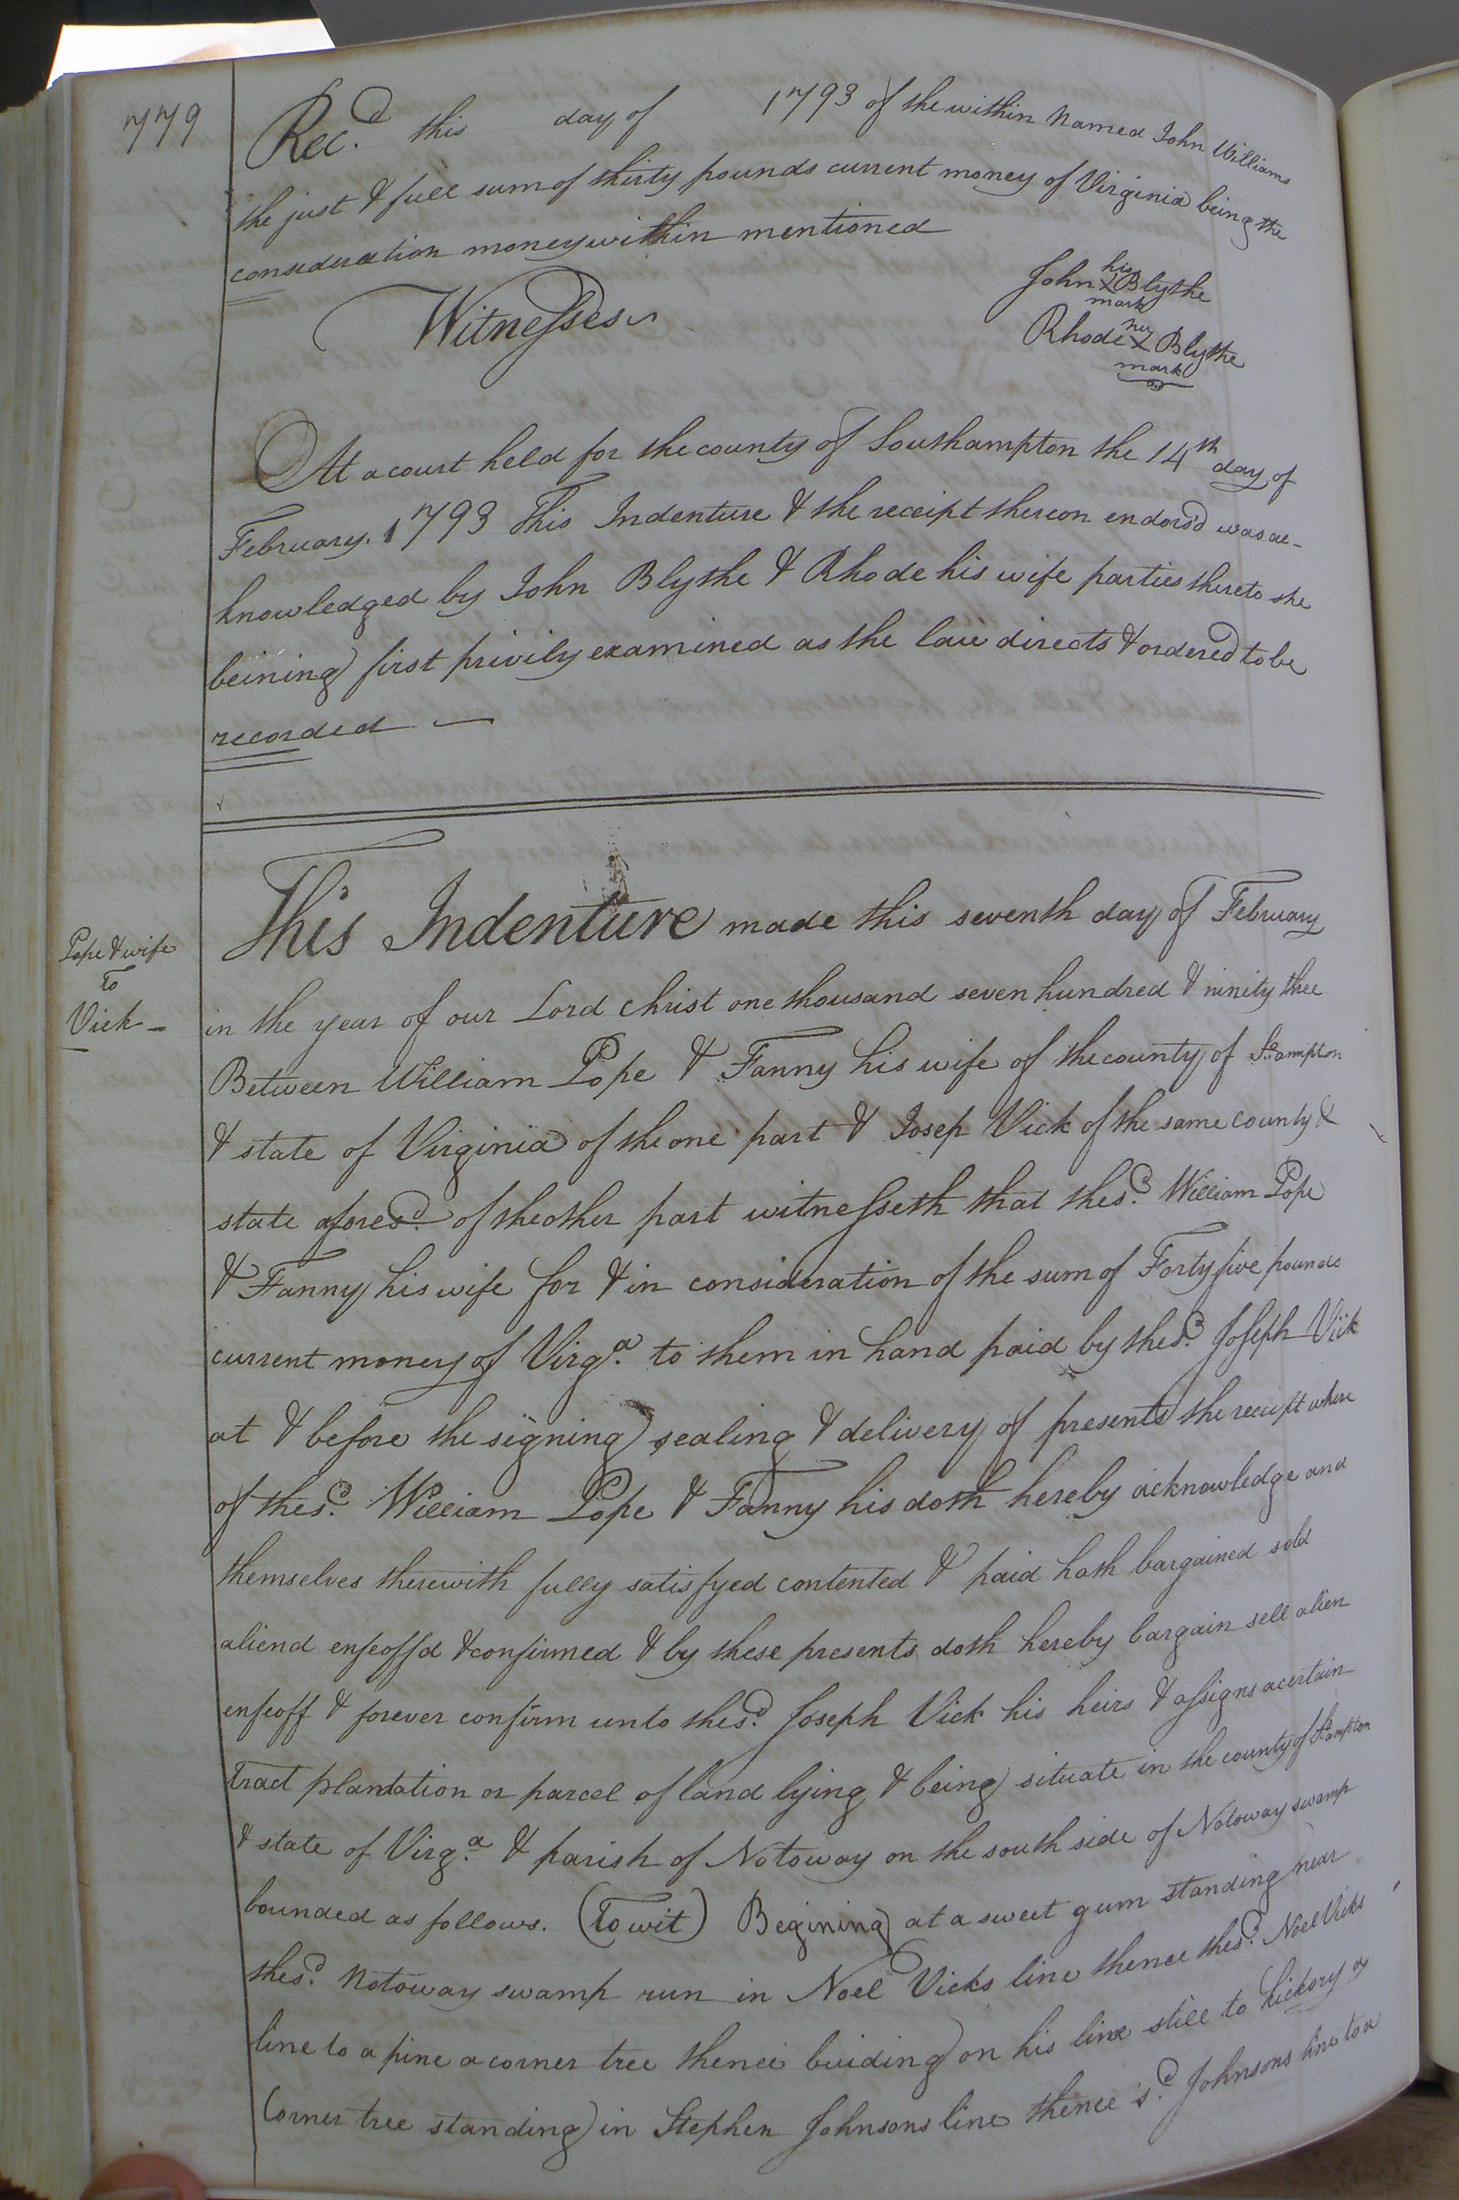 779
Rec.d this day of 1793 of the within Named John Williams
the just & full sum of thirty pounds current money of Virginia being the
consideration money within mentioned
Witnesses
John his X mark Blythe
Rhode her X mark Blythe
At a court held for the county of Southampton the 14th day of
February. 1793 This Indenture & the receipt thereon endors'd was ac-
knowledged by John Blythe & Rhode his wife parties thereto she
beining first privily examined as the law directs & ordered to be
recorded —
Pope & wife
To
Vick —
This Indenture made this seventh day of February
in the year of our Lord Christ one thousand seven hundred & ninity three
Between William Pope & Fanny his wife of the county of So.ampton
& state of Virginia of the one part & Josep Vick of the same county &
state afores.d of the other part witnesseth that the s.d William Pope
& Fanny his wife for & in consideration of the sum of Forty five pounds
current money of Virg.a to them in hand paid by the s.d Joseph Vick
at & before the signing sealing & delivery of presents the receipt where
of the s.d William Pope & Fanny his doth hereby acknowledge and
themselves therewith fully satisfyed contented & paid hath bargained sold
aliend enfeoff'd & confirmed & by these presents doth hereby bargain sell alien
enfeoff & forever confirm unto the s.d Joseph Vick his heirs & assigns a certain
Tract plantation or parcel of land lying & being situate in the county of So.ampton
& state of Virg.a & parish of Notoway on the south side of Notoway swamp
bounded as follows. (To wit) Begining at a sweet gum standing near
the s.d Notoway swamp run in Noel Vicks line thence the s.d Noel Vicks
line to a pine a corner tree thence binding on his line still to hickory a
Corner tree standing in Stephen Johnsons line thence s.d Johnsons line to a